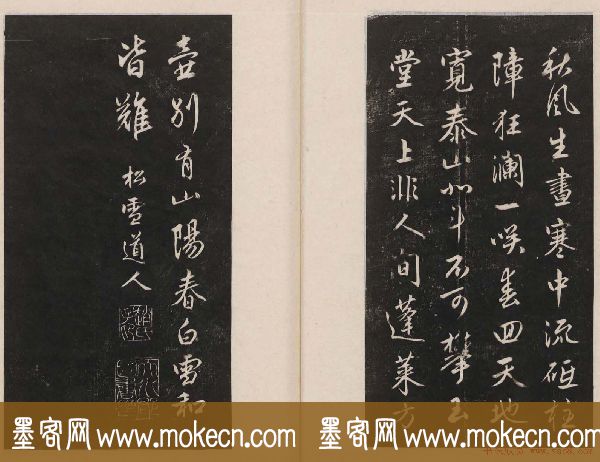 秋风生画寒中流砥柱
障狂澜一咲春回天地
宽泰山北斗不可攀玉
堂天上非人间蓬莱方
壶别有山阳春白雪和
皆难 松雪道人
墨客网 www.mokecn.com
墨客网 www.mokecn.com